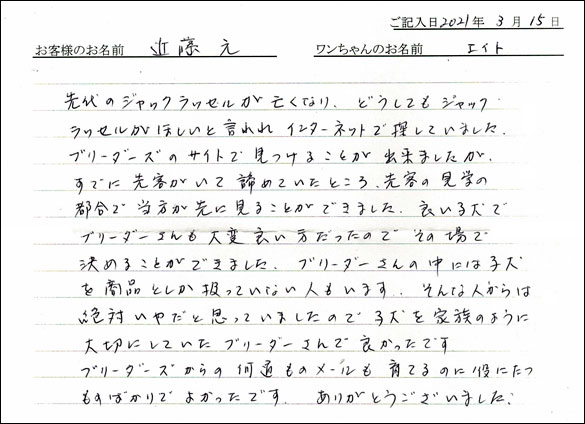 ご記入日2021年 3月 15日
お客様のお名前 近藤元 ワンちゃんのお名前 エイト
先代のジャックラッセルが亡くなり、どうしてもジャック
ラッセルがほしいと言われインターネットで探していました。
ブリーダーズのサイトで見つけることが出来ましたが、
すでに先客がいて諦めていたところ、先客の見学の
都合で当方が先に見ることができました。良い子犬で
ブリーダーさんも大変良い方だったのでその場で
決めることができました。ブリーダーさんの中には子犬
を商品としか扱っていない人もいます。そんな人からは
絶対いやだと思っていましたので子犬を家族のように
大切にしていたブリーダーさんで良かったです
ブリーダーズからの何通ものメールも育てるのに役にたつ
ものばかりでよかったです。ありがとうございました。